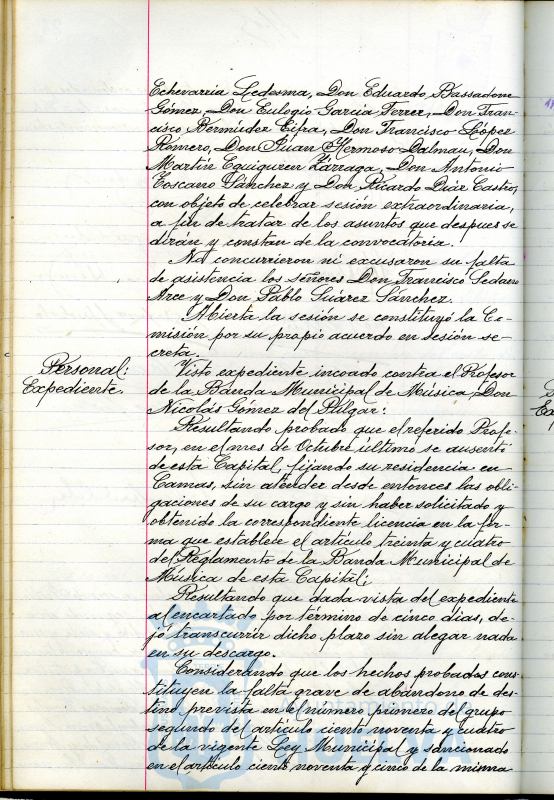 Echevarria Ledesma, Don Eduardo Bassadone
Gómez, Don Eulogio García Ferrer, Don Fran-
cisco Bermúdez Cifra, Don Francisco López
Romero, Don Juan Hermoso Dalmau, Don
Martín Equiguren Zárraga, Don Antonio
Toscano Sánchez y Don Ricardo Díaz Castro,
con objeto de celebrar sesión extraordinaria,
a fin de tratar de los asuntos que despues se
dirán y constan de la convocatoria.
No concurrieron ni excusaron su falta
de asistencia los señores Don Francisco Sedano
Arce y Don Pablo Suárez Sánchez.
Abierta la sesión se constituyó la Co-
misión por su propio acuerdo en sesión se-
creta.
Personal:
Expediente.
Visto expediente incoado contra el Profesor
de la Banda Municipal de Música, Don
Nicolás Gómez del Pulgar:
Resultando probado que el referido Profe-
sor, en el mes de Octubre último se ausentó
de esta Capital, fijando su residencia en
Camas, sin atender desde entonces las obli-
gaciones de su cargo y sin haber solicitado y
obtenido la correspondiente licencia en la for-
ma que establece el artículo treinta y cuatro
del Reglamento de la Banda Municipal de
Música de esta Capital;
Resultando que dada vista del expediente
al encartado por término de cinco días, de-
jó transcurrir dicho plazo sin alegar nada
en su descargo.
Considerando que los hechos probados cons-
tituyen la falta grave de abandono de des-
tino prevista en el número primero del grupo
segundo del artículo ciento noventa y cuatro
de la vigente Ley Municipal y sancionado
en el artículo ciento noventa y cinco de la misma